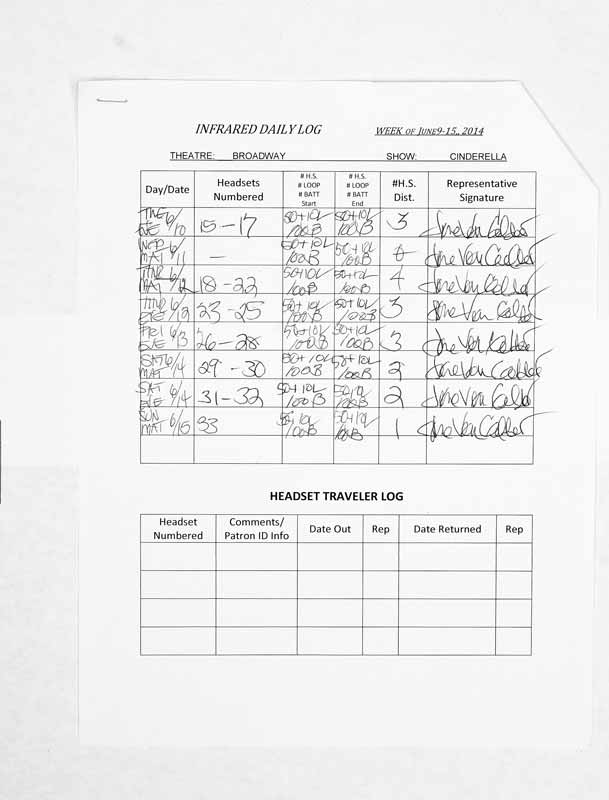 INFRARED DAILY LOG WEEK OF JUNE9-15,, 2014
THEATRE: BROADWAY SHOW: CINDERELLA
Day/Date Headsets Numbered # H.S. # LOOP # BATT Start # H.S. # LOOP # BATT End #H.S. Dist. Representative Signature
TUE EVE 6/10 15-17 50+10L 100B 50+10L 100B 3
WED MAT 6/11 — 50+10L 100B 50+10L 100B 0
THR MAT 6/12 18-22 50+10L 100B 50+10L 100B 4
THR EVE 6/12 23-25 50+10L 100B 50+10L 100B 3
FRI EVE 6/3 26-28 50+10L 100B 50+10L 100B 3
SAT MAT 6/14 29-30 50+10L 100B 50+10L 100B 2
SAT EVE 6/14 31-32 50+10L 100B 50+10L 100B 2
SUN MAT 6/15 33 50+10L 100B 50+10L 100B 1
HEADSET TRAVELER LOG
Headset Numbered Comments/ Patron ID Info Date Out Rep Date Returned Rep